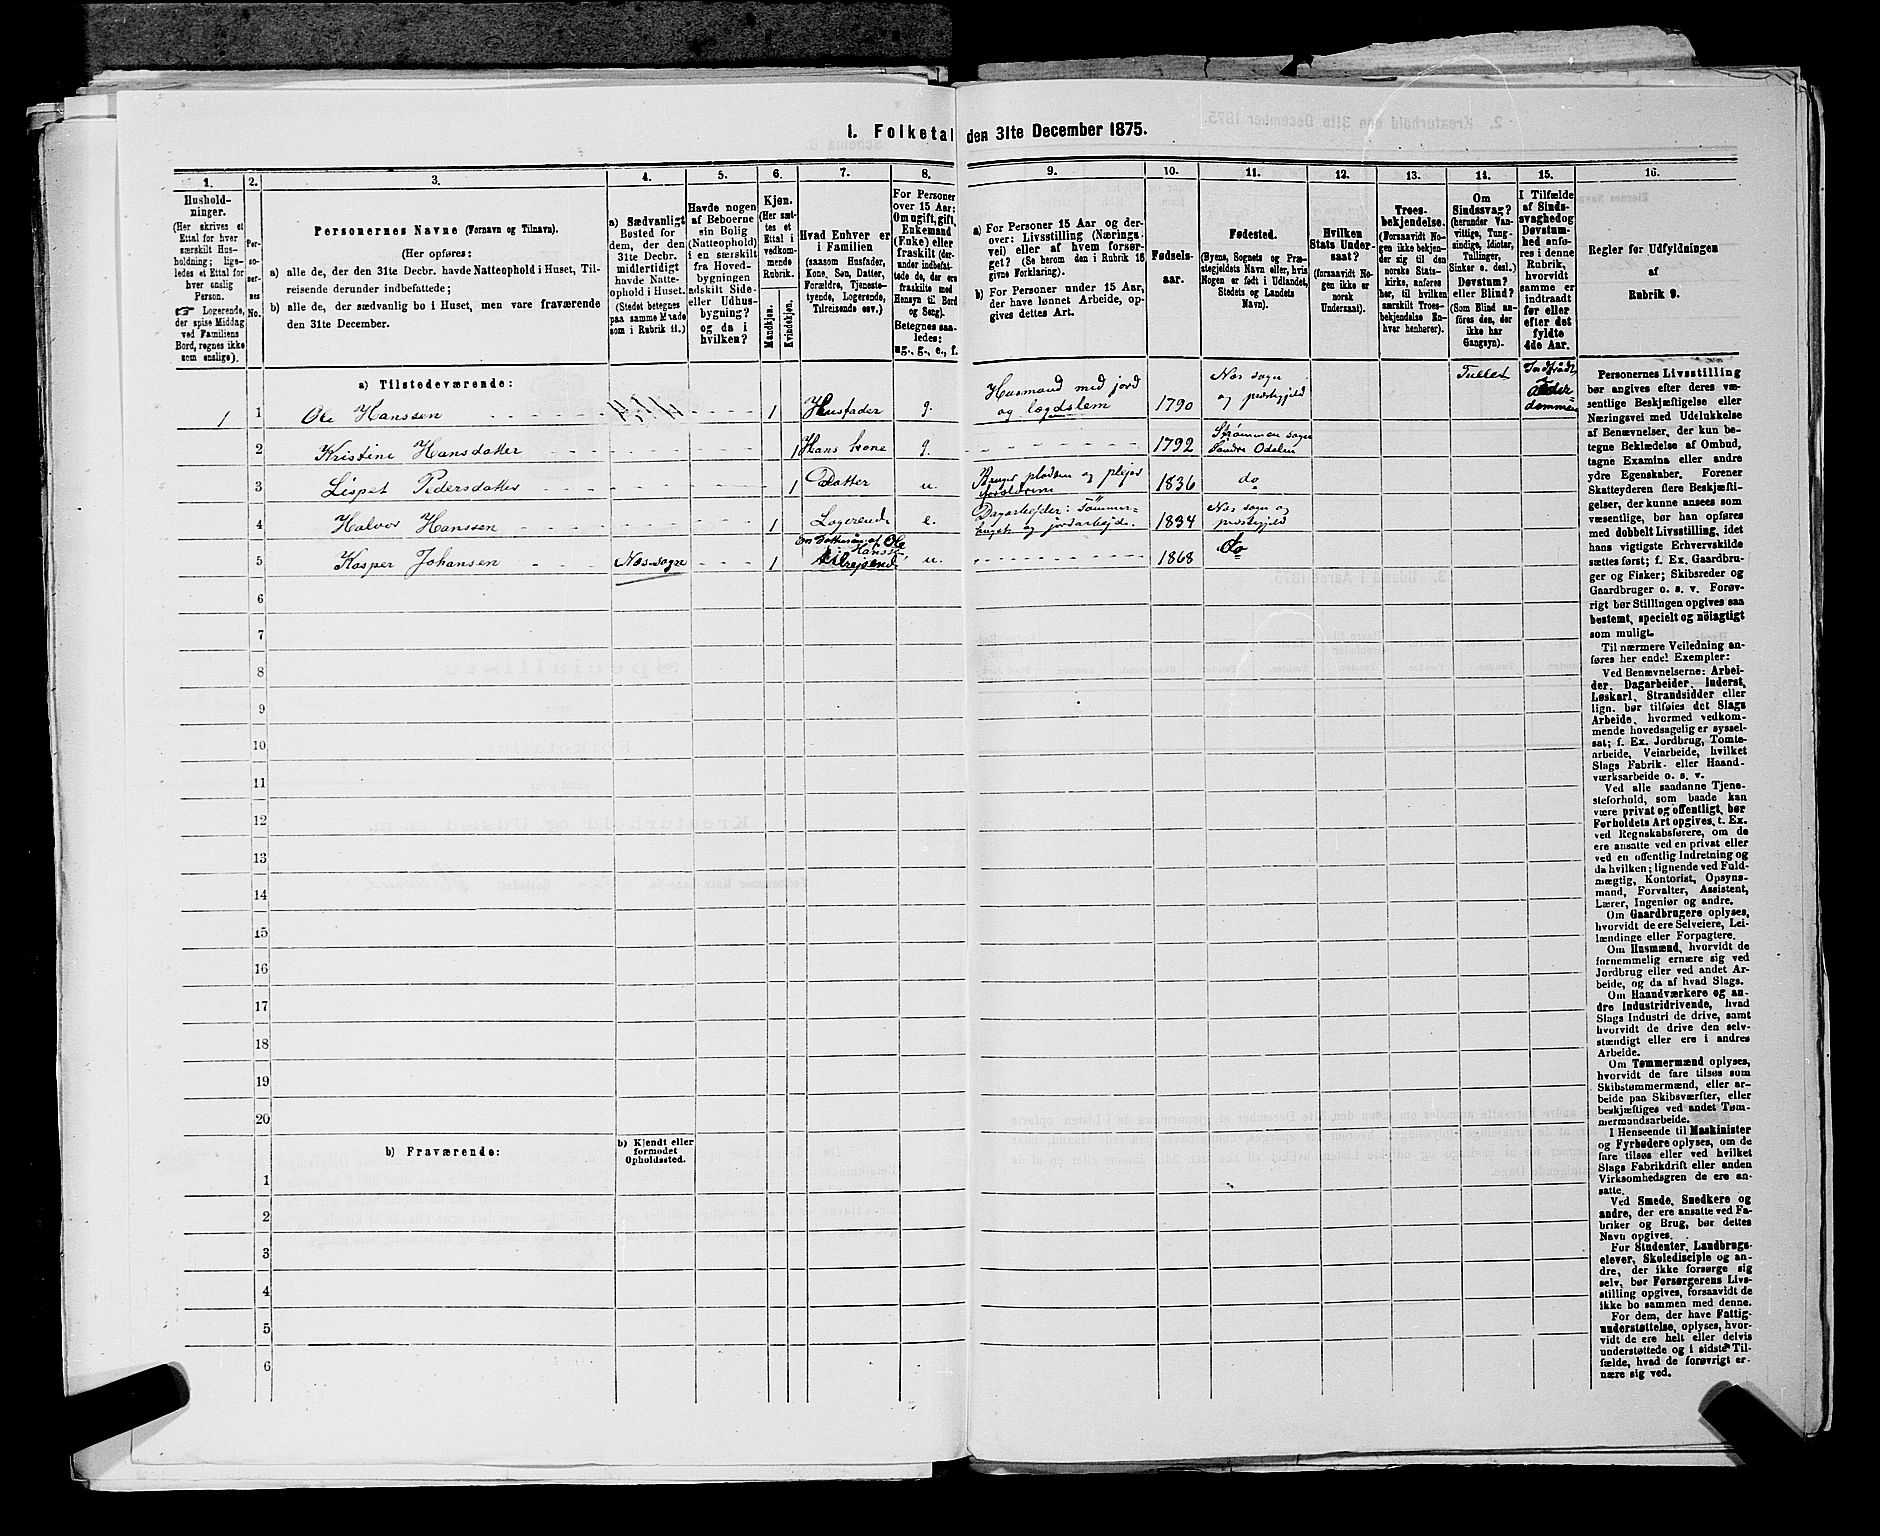 1. Folketal den 31te December 1875.
1.
Hushold-
ninger.
(Her skrives et
Ettal for hver
særskilt Hus-
holdning; lige-
ledes et Ettal for
hver enslig
Person.
Logerende,
der spise Middag
ved Familiens
Bord, regnes ikke
som enslige).
2.
Per-
so-
ner-
nes
No.
3.
Personernes Navne (Fornavn og Tilnavn).
(Her opføres:
a) alle de, der den 31te Decbr. havde Natteophold i Huset, Til-
reisende derunder indbefattede;
b) alle de, der sædvanlig bo i Huset, men vare fraværende
den 31te December.
4.
a) Sædvanligt
Bosted for
dem, der den
31te Decbr.
midlertidigt
havde Natte-
ophold i Huset.
(Stedet betegnes
paa samme Maade
som i Rubrik 11.)
5.
Havde nogen
af Beboerne
sin Bolig
(Natteophold)
i en særskilt
fra Hoved-
bygningen
adskilt Side-
eller Udhus-
bygning?
og da i
hvilken?
6.
Kjøn.
(Her sæt-
tes et
Ettal i
vedkom-
mende
Rubrik.
Mandkjøn.
Kvindekjøn.
7.
Hvad Enhver er
i Familien
(saasom Husfader,
Kone, Søn, Datter,
Forældre, Tjeneste-
tyende, Logerende,
Tilreisende osv.)
8.
For Personer
over 15 Aar:
Om ugift, gift,
Enkemand
(Enke) eller
fraskilt (der-
under indbefat-
tede de, der ere
fraskilte med
Hensyn til Bord
og Seng).
Betegnes saa-
ledes:
ug., g., e., f.
9.
a) For Personer 15 Aar og der-
over: Livsstilling (Nærings-
vei) eller af hvem forsør-
get? (Se herom den i Rubrik 16
givne Forklaring).
b) For Personer under 15 Aar,
der have lønnet Arbeide, op-
gives dettes Art.
10.
Fødsels-
aar.
11.
Fødested.
(Byens, Sognets og Præ-
stegjeldets Navn eller, hvis
Nogen er født i Udlandet,
Stedets og Landets
Navn).
12.
Hvilken
Stats Under-
saat?
(foraavidt No-
gen ikke er
norsk
Undersaat).
13.
Troes-
bekjendelse.
(Forsaavidt No-
gen ikke bekjen-
der sig til den
norske Stats-
kirke, anføres
her, til hvilken
særskilt Troes-
bekjendelse En-
hver henhører).
14.
Om
Sindssvag?
(herunder Van-
vittige, Tung-
sindige, Idioter,
Tullinger,
Sinker o. desl.)
Døvstum?
eller Blind?
(Som Blind an-
føres den, der
ikke har
Gangsyn).
15.
I Tilfælde
af Sinds-
svaghed og
Døvstum-
hed anfø-
res i denne
Rubrik,
hvorvidt
samme er
indtraadt
før eller
efter det
fyldte
4de Aar.
16.
Regler for Udfyldningen
af
Rubrik 9.
a) Tilstedeværende:
1 1 Ole Hanssen 1 Husfader g. Husmand med jord og lægdslem 1790 Nes sogn og præstegjeld Tullet
2 Kristine Hansdatter 1 Hans kone g. 1792 Strømmen sogn Søndre Odalen
3 Lispet Pedersdatter 1 Datter u. Bruger pladsen og plejer forældrene 1836 do
4 Halvor Hanssen 1 Logerende e. Dagarbejder: Tömmer- og jordarbejde. 1834 Nes sogn og præstegjeld
5 Kasper Johansen Nes sogn 1 en Dattersön af Ole Hanssen tilrejsende u. 1868 do
6
7
8
9
10
11
12
13
14
15
16
17
18
19
20
b) Fraværende:
b) Kjendt eller
formodet
Opholdssted.
1
2
3
4
5
6
Personernes Livsstilling
bør angives efter deres væ-
sentlige Beskjæftigelse eller
Næringsvei med Udelukkelse
af Benævnelser, der kun be-
tegne Beklædelse af Ombud,
tagne Examina eller andre
ydre Egenskaber. Forener
Skatteyderen flere Beskjæfti-
gelser, der kunne ansees som
væsentlige, bør han opføres
med dobbelt Livsstilling, idet
hans vigtigste Erhvervskilde
sættes først; f. Ex. Gaardbru-
ger og Fisker; Skibsreder og
Gaardbruger o. s. v. Forøv-
rigt bør Stillingen opgives saa
bestemt, specielt og nöiagtigt
som muligt.
Til nærmere Veiledning an-
føres her endel Exempler:
Ved Benævnelserne: Arbei-
der, Dagarbeider, Inderst,
Løskarl, Strandsidder eller
lign. bør tilføies det Slags
Arbeide, hvormed vedkom-
mende hovedsagelig er syssel-
sat; f. Ex. Jordbrug, Tomte-
arbeide, Veiarbeide, hvilket
Slags Fabrik- eller Haand-
værksarbeide o. s. v.
Ved alle saadanne Tjene-
steforhold, som baade kan
være privat og offentligt, bør
Forholdets Art opgives, t. Ex.
ved Regnskabsførere, om de
ere ansatte ved en privat eller
ved en offentlig Indretning og
da hvilken; lignende ved Fuld-
mægtig, Kontorist, Opsyns-
mand, Forvalter, Assistent,
Lærer, Ingeniør og andre.
Om Gaardbrugere oplyses,
hvorvidt de ere Selveiere, Lei-
lændinge eller Forpagtere.
Om Husmænd, hvorvidt de
fornemmelig ernære sig ved
Jordbrug eller ved andet Ar-
beide, og da af hvad Slags.
Om Haandværkere og an-
dre Industridrivende, hvad
Slags Industri de drive, samt
hvorvidt de drive den selv-
stændigt eller ere i andres
Arbeide.
Om Tømmermænd oplyses,
hvorvidt de fare tilsøs som
Skibstømmermænd, eller ar-
beide paa Skibsværfter, eller
beskjæftiges ved andet Tøm-
mermandsarbeide.
I Henseende til Maskinister
og Fyrbødere oplyses, om de
fare tilsøs eller ved hvilket
Slags Fabrikdrift eller anden
Virksomhedsgren de ere an-
satte.
Ved Smede, Snedkere og
andre, der ere ansatte ved Fa-
briker og Brug, bør dettes
Navn opgives.
For Studenter, Landbrugs-
elever, Skoledisciple og an-
dre, der ikke forsørge sig
selv, bør Forsørgerens Livs-
stilling opgives, forsaavidt de
ikke bo sammen med denne.
For dem, der have Fattig-
understøttelse, oplyses, hvor-
vidt de ere helt eller delvis
understøttede og i sidste Til-
fælde, hvad de forøvrigt er-
nære sig ved.